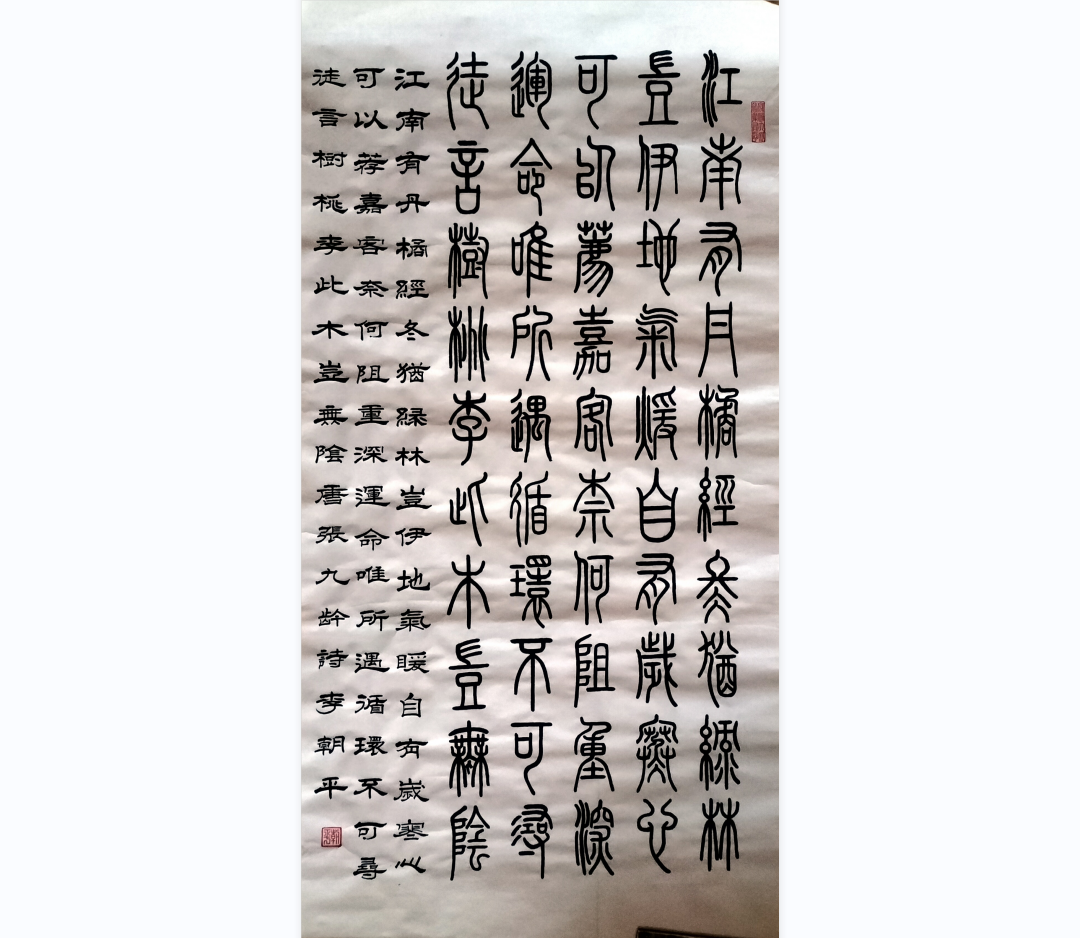 江南有丹橘經冬猶緑林
豈伊地氣煖自有歲寒心
可以薦嘉客奈何阻重深
運命唯所遇循環不可尋
徒言樹桃李此木豈無陰
江南有丹橘經冬猶緑林豈伊地氣暖自有歲寒心
可以荐嘉客奈何阻重深運命唯所遇循環不可尋
徒言樹桃李此木豈無陰唐張九龄詩李朝平